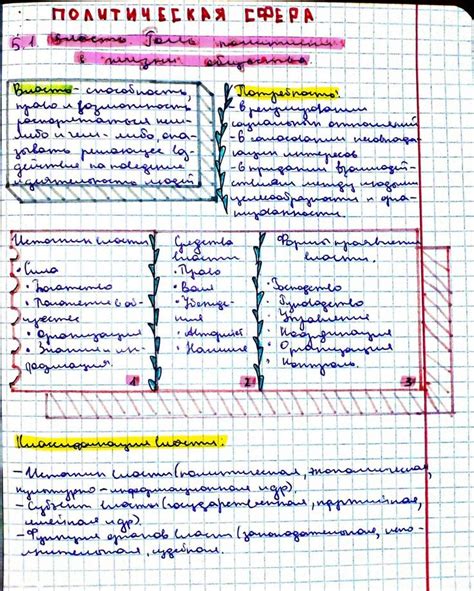 ПОЛИТИЧЕСКАЯ СФЕРА
5.1. Власть. Роль политики
в жизни общества
Власть - способность,
право и возможность
распоряжаться кем-
либо и чем-либо, ока-
зывать решающее воз-
действие на поведение
и деятельность людей
Потребность:
- В регулировании
социальных отношений
- В согласовании несовпа-
дающих интересов
- В придании взаимодей-
ствиям между людьми
целесообразности и орга-
низованности.
Источники власти
• Сила
• Богатство
• Положение в об-
ществе
• Организация
• Знания и ин-
формация.
1
Средства
власти
• Право
• Воля
• Убежде-
ния
• Авторитет
• Насилие
2
Формы проявления
власти.
• Господство
• Руководство
• Управление
• Координация
• Организация
• Контроль.
3
Классификация власти:
- Источник власти (политическая, экономическая,
культурно-информационная и др).
- Субъект власти (государственная, партийная,
семейная и др).
- Функция органов власти (законодательная, испо-
лнительная, судебная.